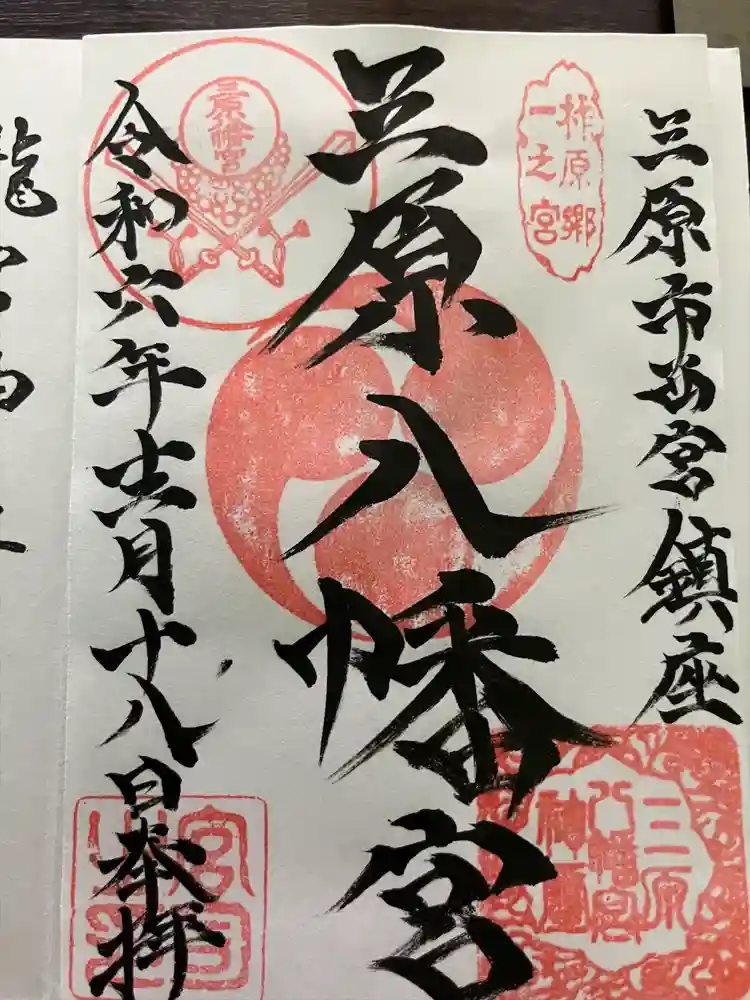 三原市西宮鎮座
柞原郷
一之宮
三原八幡宮
三原
八幡宮
神璽
三原八幡宮
令和六年十一月十八日奉拝
宮司
之印
龍